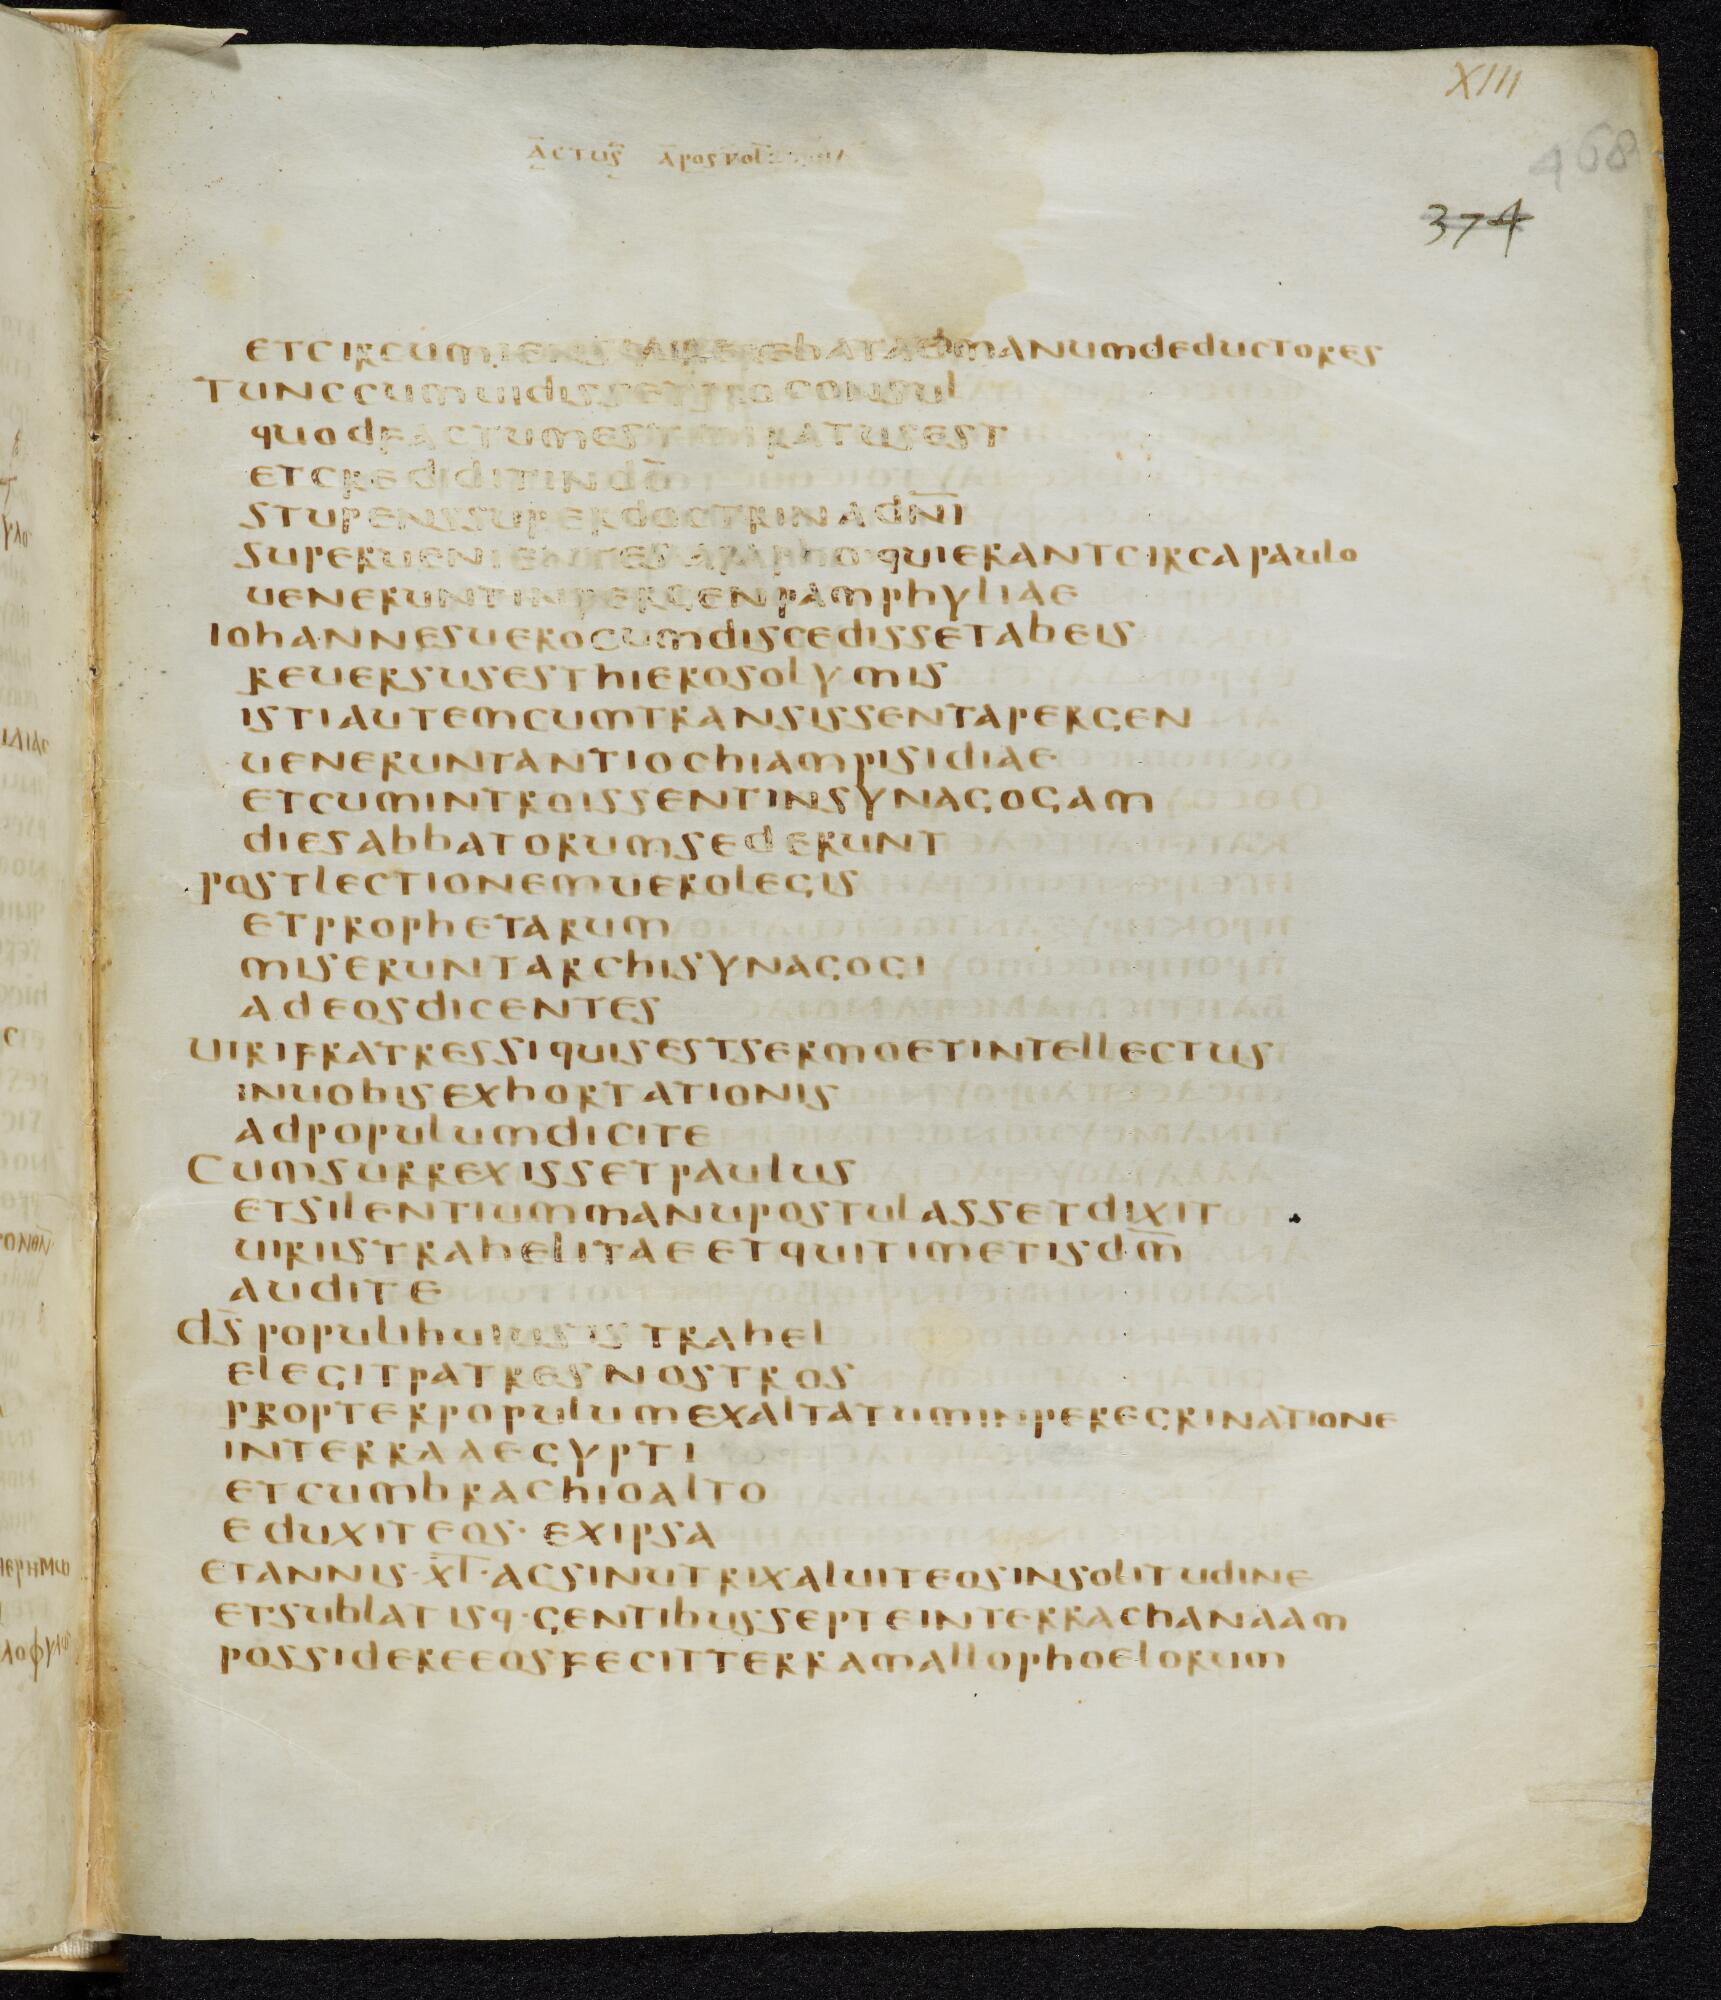 XIII
468
ACTUS APOSTOL
374
ETCIRCUMIENSQUAEREBATADMANUMDEDUCTORES
TUNCCUMUIDISSETPROCONSUL
QUODFACTUMESTMIRATUSEST
ETCREDIDITINDM̄
STUPENSSUPERDOCTRINADN̄I
SUPERUENIENTES QUIERANTCIRCAPAULO
UENERUNTINPERGENPAMPHYLIAE
IOHANNESUEROCUMDISCEDISSETABEIS
REUERSUSESTHIEROSOLYMIS
ISTIAUTEMCUMTRANSISSENTAPERGEN
UENERUNTANTIOCHIAMPISIDIAE
ETCUMINTROISSENTINSYNAGOGAM
DIESABBATORUMSEDERUNT
POSTLECTIONEMUEROLEGIS
ETPROPHETARUM
MISERUNTARCHISYNAGOGI
ADEOSDICENTES
UIRIFRATRESSIQUISESTSERMOETINTELLECTUS
INUOBISEXHORTATIONIS
ADPOPULUMDICITE
CUMSURREXISSETPAULUS
ETSILENTIUMMANUPOSTULASSETDIXIT
UIRIISTRAHELITAEETQUITIMETISDM̄
AUDITE
DS̄POPULIHUIUSISTRAHEL
ELEGITPATRESNOSTROS
PROPTERPOPULUMEXALTATUMINPEREGRINATIONE
INTERRAAEGYPTI
ETCUMBRACHIOALTO
EDUXITEOS·EXIPSA
ETANNIS·X̄L̄·ACSINUTRIXALUITEOSINSOLITUDINE
ETSUBLATISQ·GENTIBUSSEPTEINTERRACHANAAM
POSSIDEREEOSFECITTERRAMALLOPHOELORUM